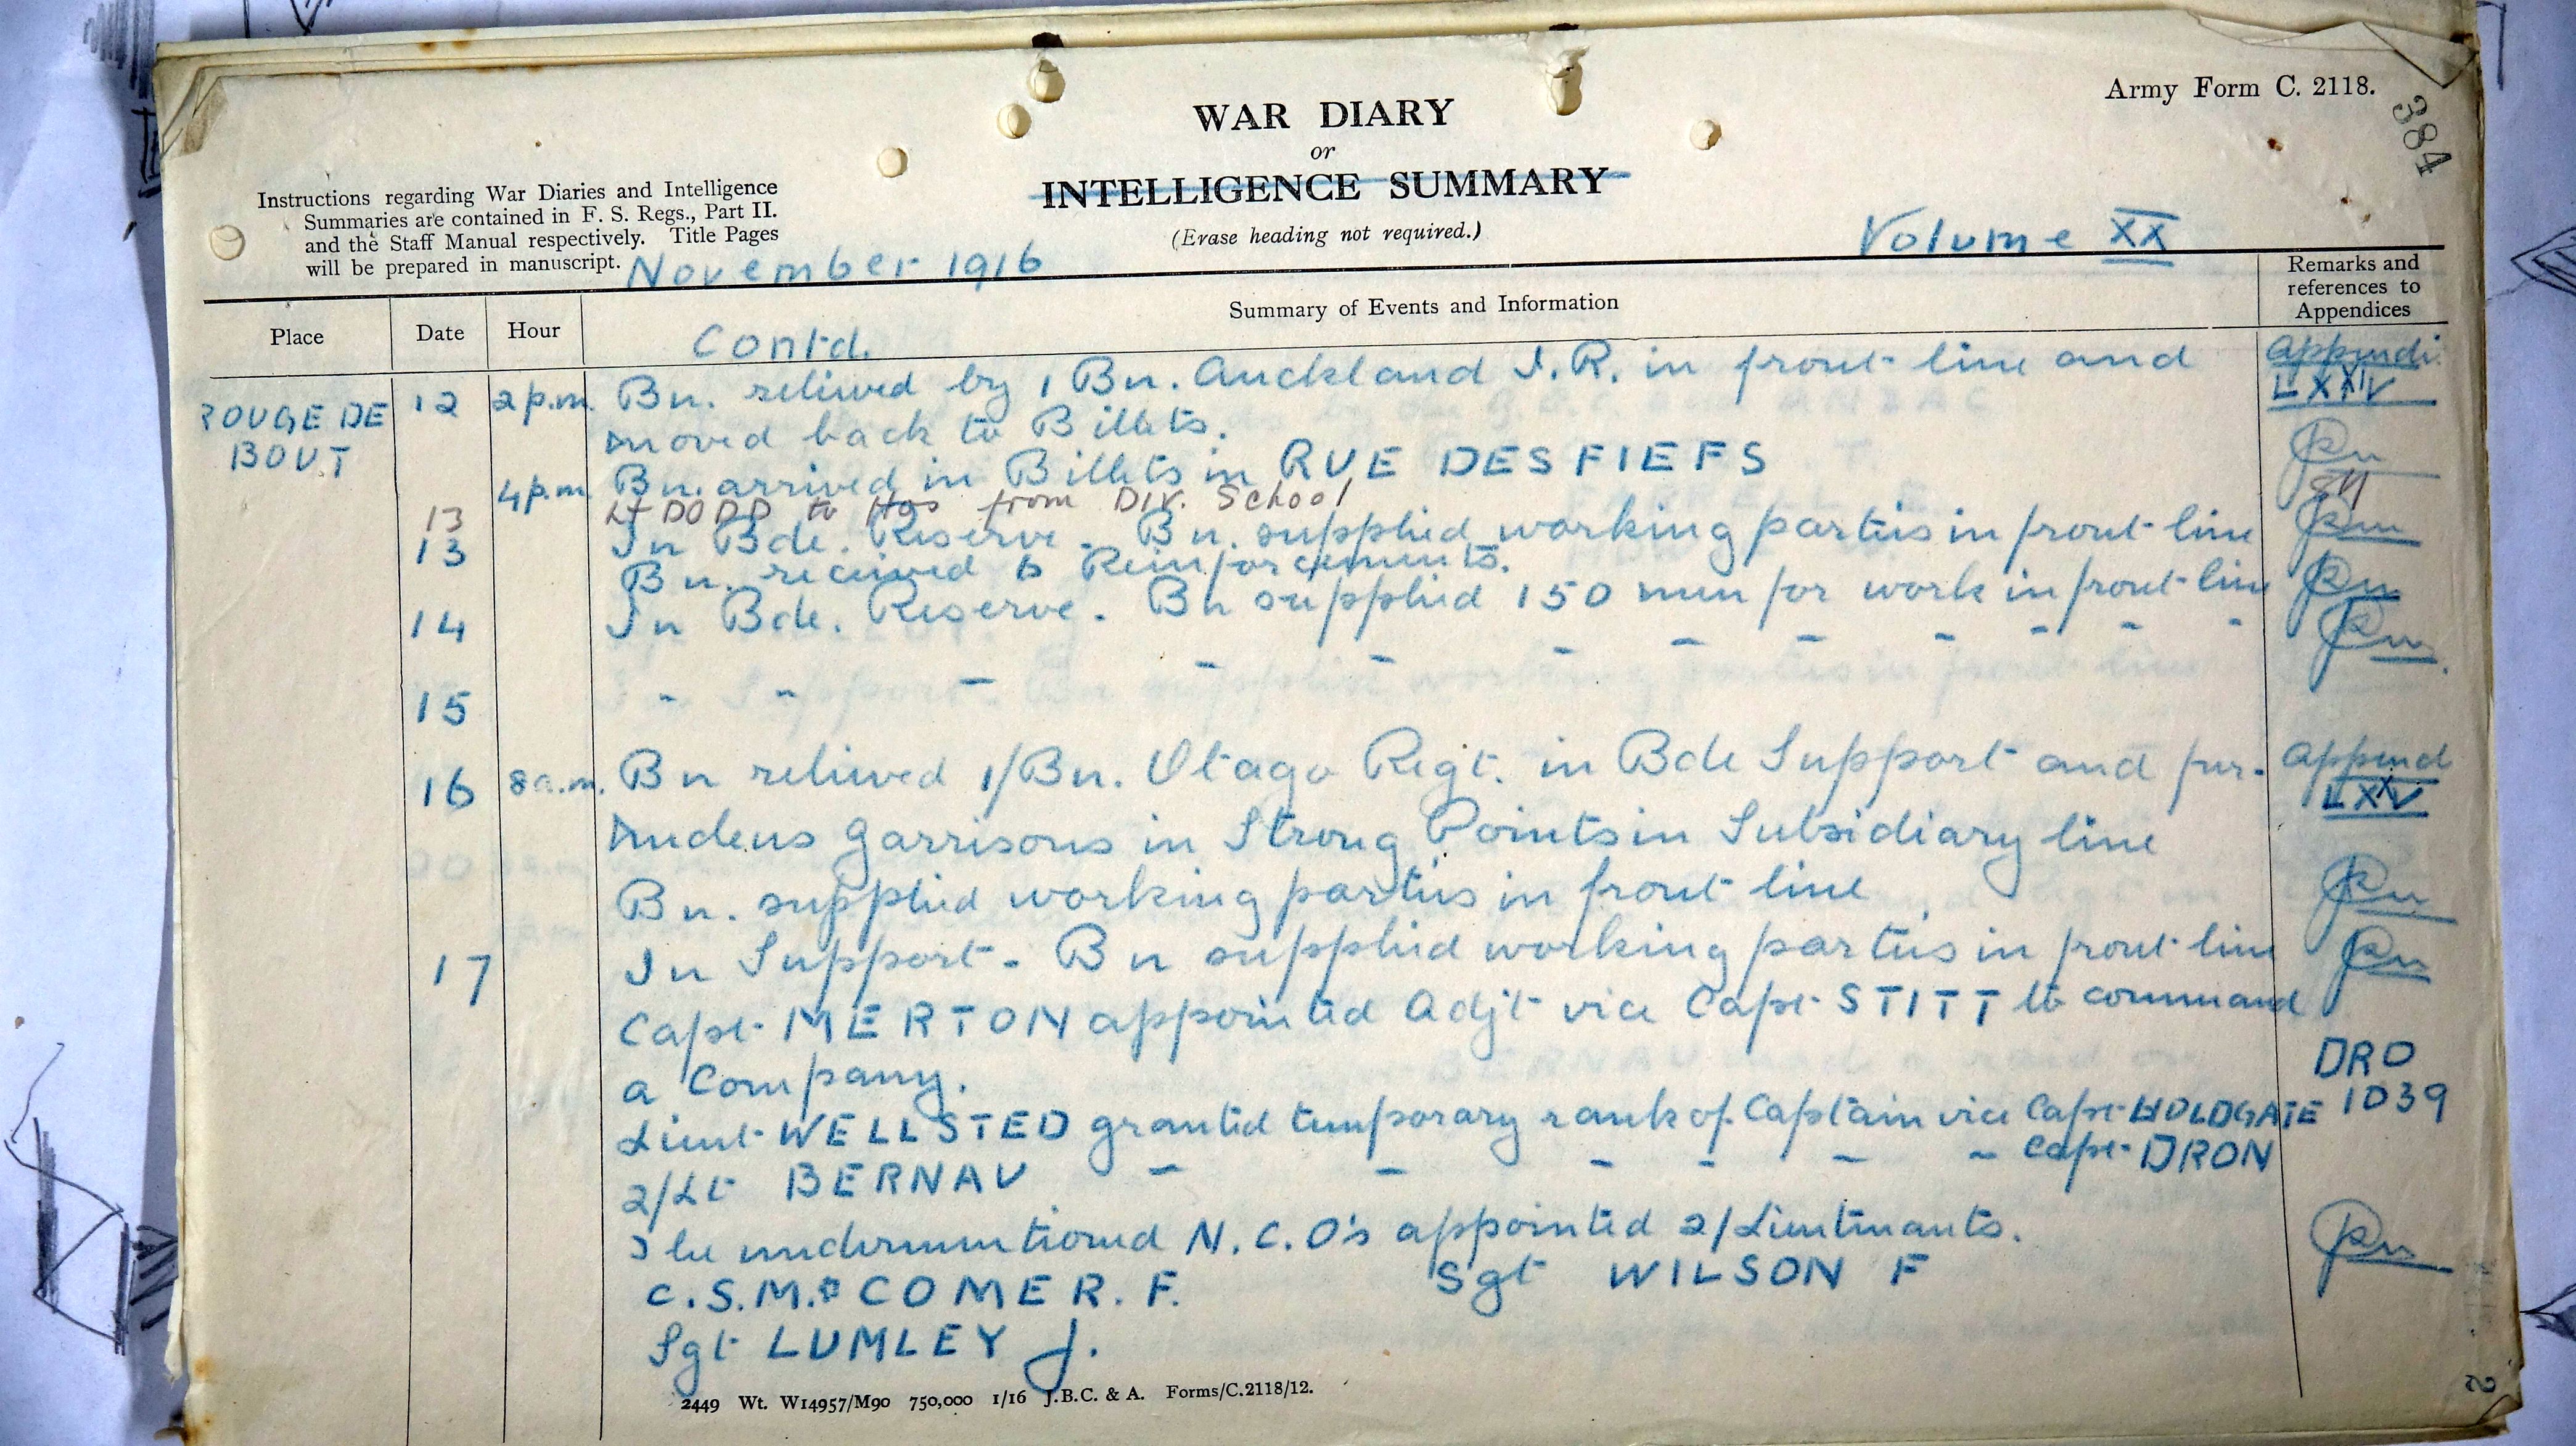 Army Form C. 2118.
384
WAR DIARY
or
INTELLIGENCE SUMMARY
(Erase heading not required.)
Instructions regarding War Diaries and Intelligence
Summaries are contained in F. S. Regs., Part II.
and the Staff Manual respectively. Title Pages
will be prepared in manuscript.
November 1916
Volume XX
Place
Date
Hour
Summary of Events and Information
Remarks and
references to
Appendices
Contd.
ROUGE DE
BOUT
12 2 p.m. Bn. relieved by 1 Bn. Auckland I.R. in front line and
Appendi
LXXIV
moved back to Billets.
4 p.m Bn. arrived in Billets in RUE DES FIEFS
13 Lt DODD to Hos from DIV. School
13 In Bde. Reserve. Bn. supplied working parties in front line
Bn. received 6 Reinforcements.
14 In Bde. Reserve. Bn supplied 150 men for work in front line
15 " " - - - - - - - - - -
16 8 a.m. Bn relieved 1/Bn. Otago Regt. in Bde Support and fur-
Append
LXXV
nudens garrisons in Strong Points in Subsidiary line
Bn. supplied working parties in front line
17 In Support. Bn supplied working parties in front line
Capt. MERTON appointed Adjt vice Capt STITT to command
a Company.
DRO
1039
Lieut. WELLSTED granted temporary rank of Captain vice Capt. HOLDGATE
2/Lt BERNAU - - - - - - Capt. DRON
The undermentioned N.C.O's appointed 2/Lieutenants.
C.S.M. COMER. F. Sgt WILSON F
Sgt LUMLEY J.
2449 Wt. W14957/M90 750,000 1/16 J.B.C. & A. Forms/C.2118/12.